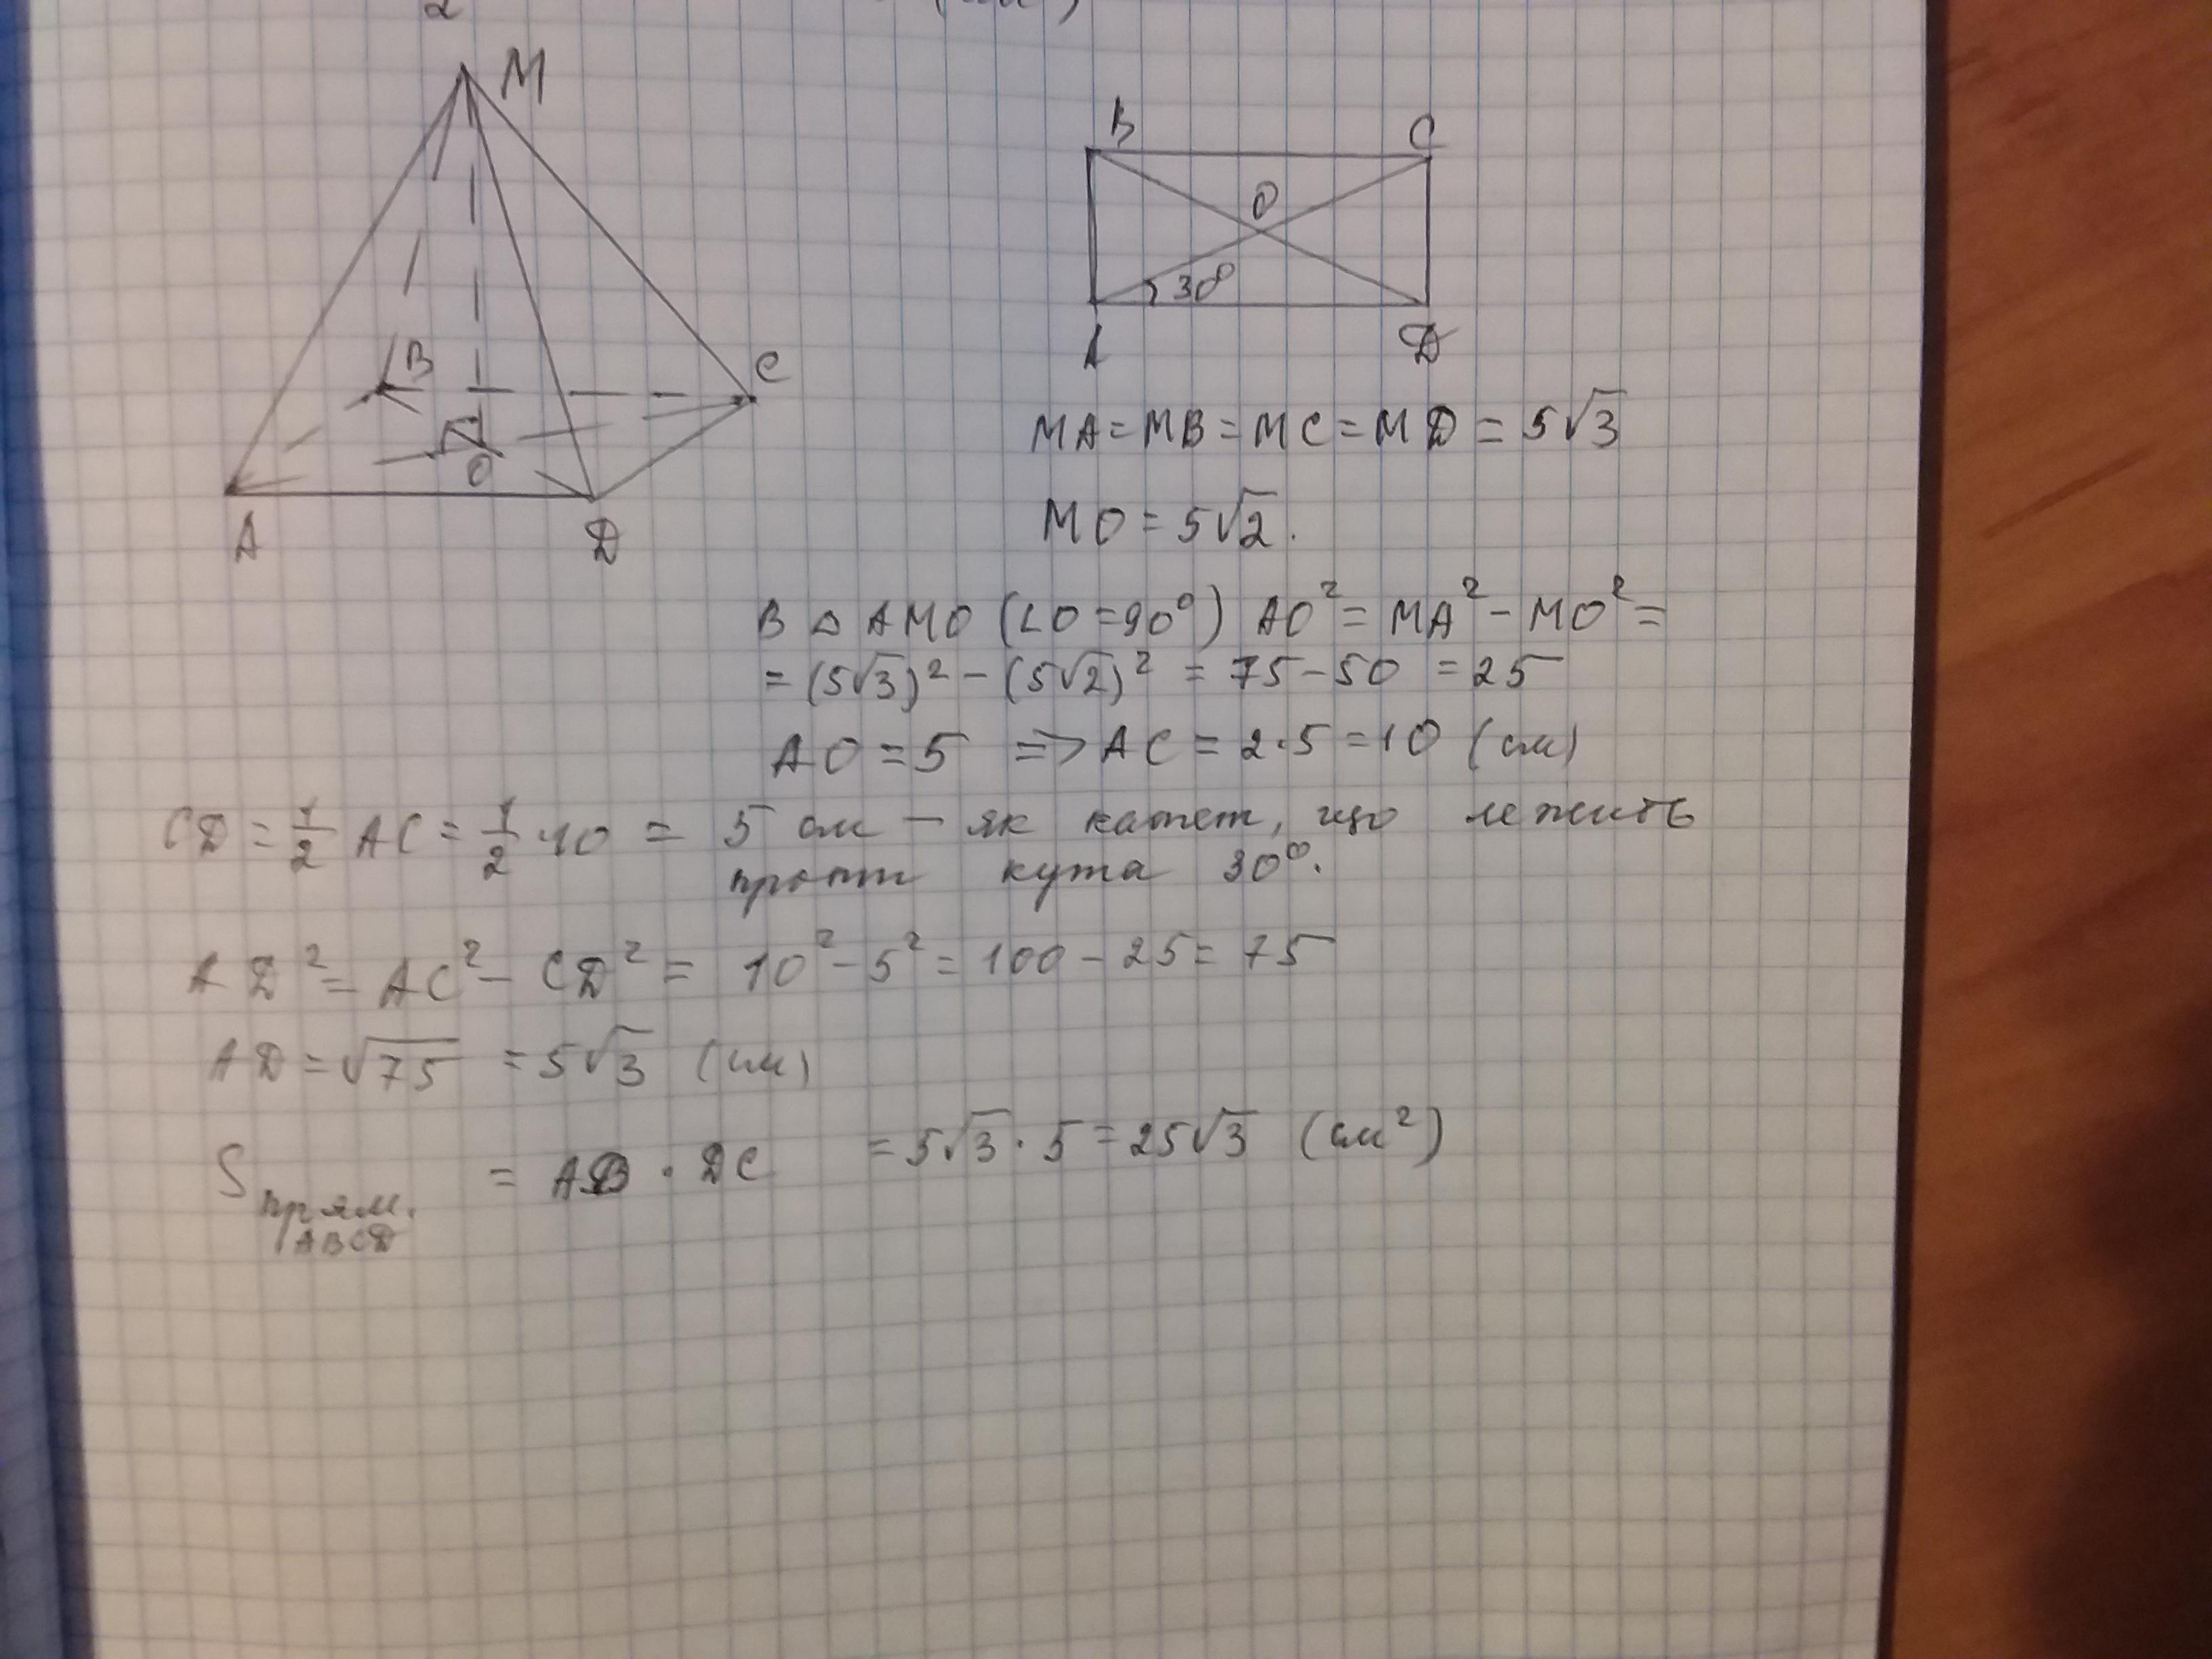 2
M
B
C
O
A
D
B
C
O
30°
A
D
MA = MB = MC = MD = 5√3
MO = 5√2.
В △ AMO (∠O = 90°) AO² = MA² - MO² =
= (5√3)² - (5√2)² = 75 - 50 = 25
AO = 5 => AC = 2·5 = 10 (см)
CD = 1/2 AC = 1/2 · 10 = 5 см - як катет, що лежить
проти кута 30°.
AD² = AC² - CD² = 10² - 5² = 100 - 25 = 75
AD = √75 = 5√3 (см)
S прям. ABCD = AB · DC = 5√3 · 5 = 25√3 (см²)